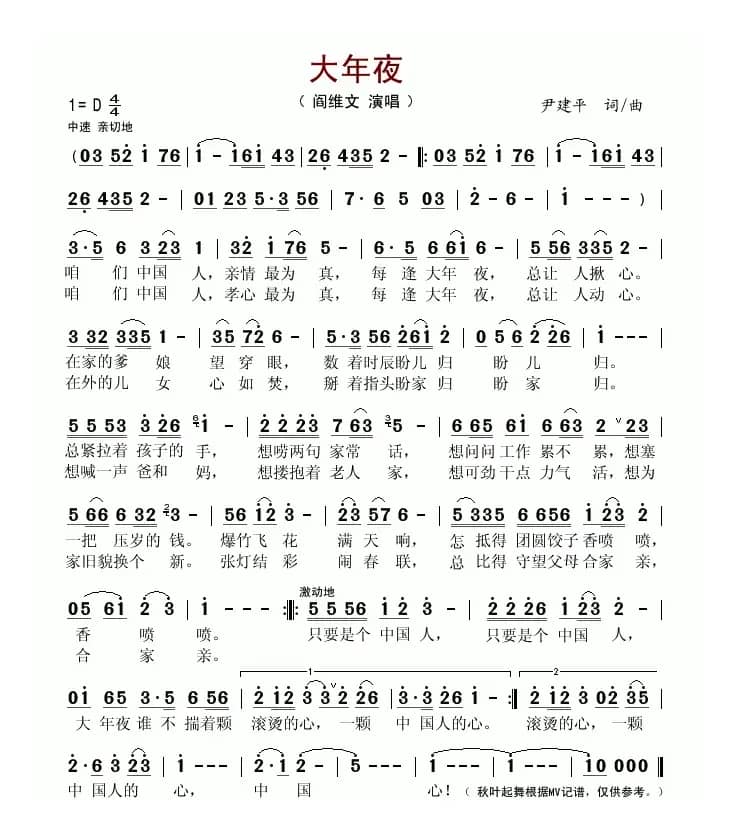 大年夜
（ 阎维文 演唱 ）
1= D 4/4
尹建平 词/曲
中速 亲切地
( 03 52 1 76 | 1 - 161 43 | 26 435 2 - ‖: 03 52 1 76 | 1 - 161 43 |
26 435 2 - | 01 23 5·3 56 | 7·6 5 03 | 2 - 6 - | 1 - - - ) |
3·5 6 3 23 1 | 32 1 76 5 - | 6·5 6 61 6 | 5 56 335 2 - |
咱 们 中国 人，亲情 最为 真， 每 逢 大年 夜， 总让 人揪 心。
咱 们 中国 人，孝心 最为 真， 每 逢 大年 夜， 总让 人动 心。
3 32 335 1 - | 35 72 6 - | 5·3 56 261 2 | 0 5 6 2 26 | 1 - - - |
在家的爹 娘 望 穿 眼， 数 着时辰盼儿 归 盼 儿 归。
在外的儿 女 心 如 焚， 掰 着指头盼家 归 盼 家 归。
5 5 53 3 26 1 - | 2 2 23 7 63 5 - | 6 65 61 6 63 2 ∨ 23 |
总紧拉着 孩子的 手， 想唠两句 家常 话， 想问问 工作 累不 累，想塞
想喊一声 爸和 妈， 想搂抱着 老人 家， 想可劲干点 力气 活，想为
5 66 6 32 3 - | 56 12 3 - | 23 57 6 - | 5 335 6 656 123 2 |
一把 压岁的 钱。 爆竹飞 花 满 天 响， 怎 抵得 团圆饺子 香喷 喷，
家旧貌换个 新。 张灯结 彩 闹 春 联， 总 比得 守望父母 合家 亲，
05 61 2 3 | 1 - - - :‖: 5 5 56 1 2 3 | 2 2 26 1 23 2 |
激动地
香 喷 喷。 只要是个 中国 人， 只要是个 中国 人，
合 家 亲。
1
2
01 65 3·5 56 | 2 12 3 3∨2 26 | 3·3 23 1 - :‖ 2 12 3 02 35 |
大 年夜 谁 不 揣着颗 滚烫的 心，一颗 中 国人的 心。 滚烫的心，一颗
2·6 3 23 | 1 - - - | 2·1 2 - | 1 - - - | 10 000 ‖
中 国人的 心， 中 国 心！
（ 秋叶起舞根据MV记谱，仅供参考。）